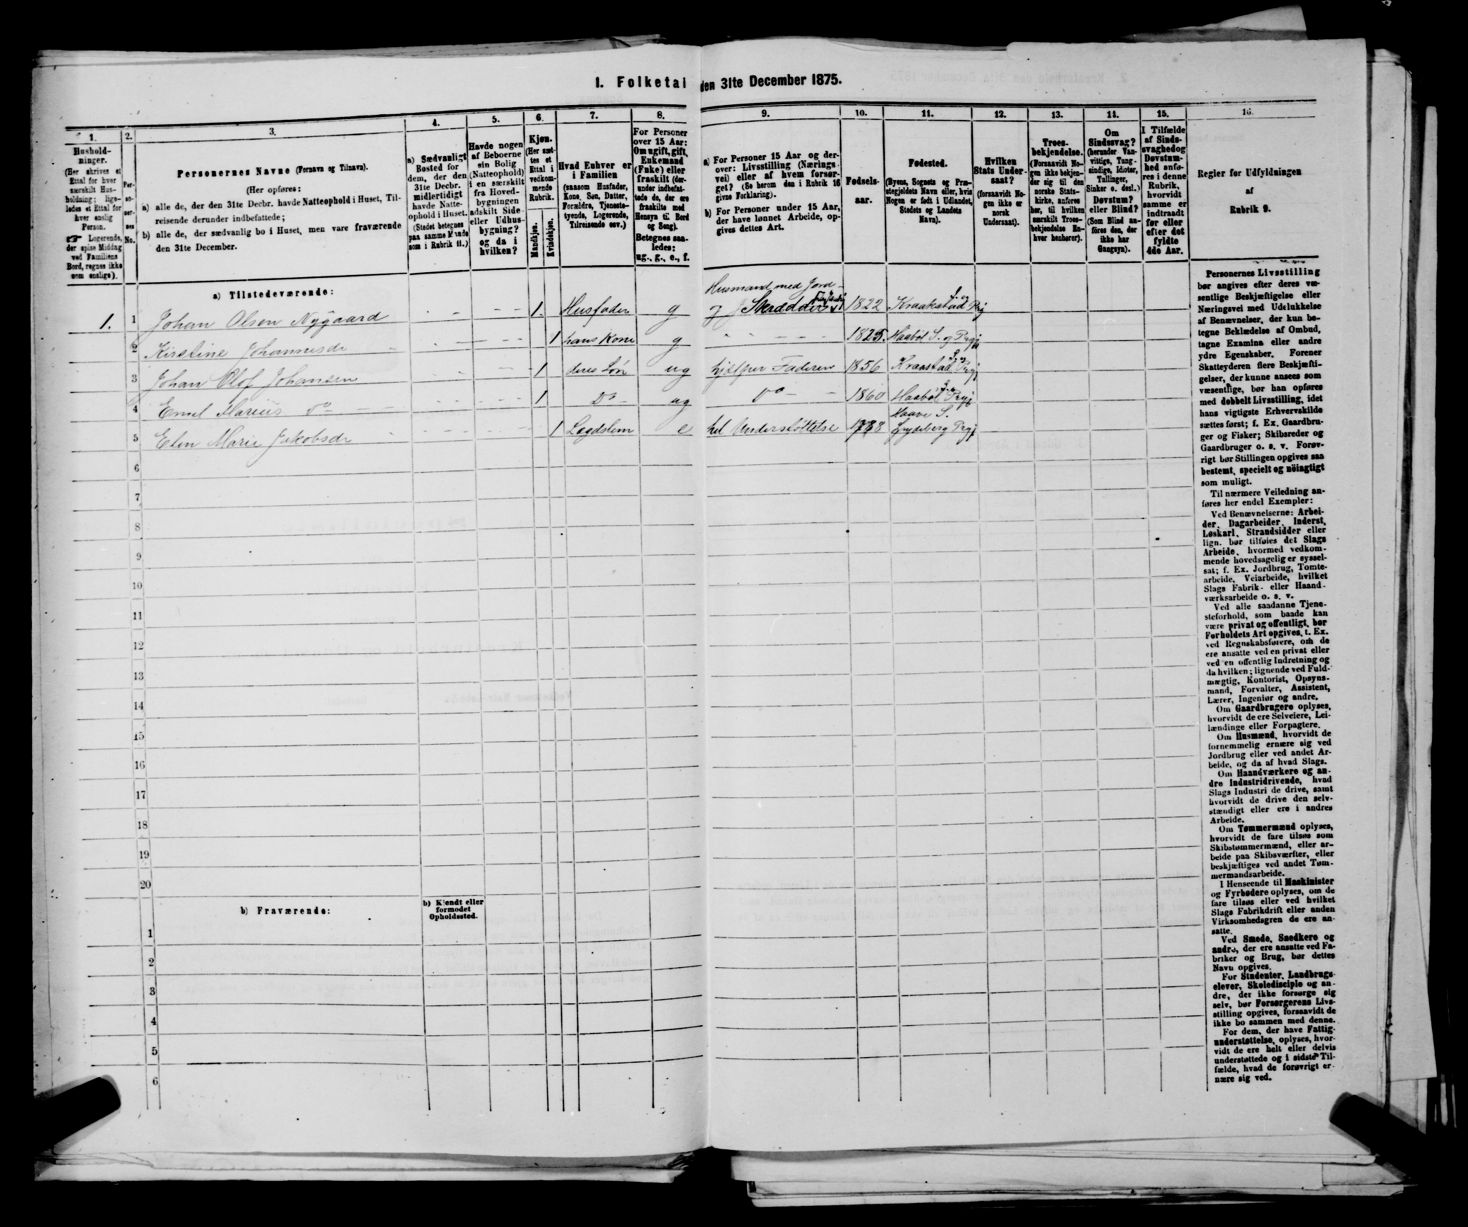 I. Folketal den 31te December 1875.
1.
Hushold-
ninger.
(Her skrives et
Ettal for hver
særskilt Hus-
holdning; lige-
ledes et Ettal for
hver enslig
Person.
Logerende,
der spise Middag
ved Familiens
Bord, regnes ikke
som enslige).
2.
Per-
so-
ner-
nes
No.
3.
Personernes Navne (Fornavn og Tilnavn).
(Her opføres:
a) alle de, der den 31te Decbr. havde Natteophold i Huset, Til-
reisende derunder indbefattede;
b) alle de, der sædvanlig bo i Huset, men vare fraværende
den 31te December.
4.
a) Sædvanligt
Bosted for
dem, der den
31te Decbr.
midlertidigt
havde Natte-
ophold i Huset.
(Stedet betegnes
paa samme Maade
som i Rubrik 11.)
5.
Havde nogen
af Beboerne
ein Bolig
(Natteophold)
i en særskilt
fra Hoved-
bygningen
adskilt Side-
eller Udhus-
bygning?
og da i
hvilken?
6.
Kjøn.
(Her sæt-
tes et
Ettal i
vedkom-
mende
Rubrik.
Mandkjøn.
Kvindekjøn.
7.
Hvad Enhver er
i Familien
(saasom Husfader,
Kone, Søn, Datter,
Forældre, Tjeneste-
tyende, Logerende,
Tilreisende osv.)
8.
For Personer
over 15 Aar:
Om ugift, gift,
Enkemand
(Enke) eller
fraskilt (der-
under indbefat-
tede de, der ere
fraskilte med
Hensyn til Bord
og Seng).
Betegnes saa-
ledes:
ug., g., e., f.
9.
a) For Personer 15 Aar og der-
over: Livsstilling (Nærings-
vei) eller af hvem forsør-
get? (Se herom den i Rubrik 16
givne Forklaring).
b) For Personer under 15 Aar,
der have lønnet Arbeide, op-
gives dettes Art.
10.
Fødsels-
aar.
11.
Fødested.
(Byens, Sognets og Præ-
stegjeldets Navn eller, hvis
Nogen er født i Udlandet,
Stedets og Landets
Navn).
12.
Hvilken
Stats Under-
saat?
(forsaavidt No-
gen ikke er
norsk
Undersaat).
13.
Troes-
bekjendelse.
(Forsaavidt No-
gen ikke bekjen-
der sig til den
norske Stats-
kirke, anføres
her, til hvilken
særskilt Troes-
bekjendelse En-
hver henhører).
14.
Om
Sindssvag?
(herunder Van-
vittige, Tung-
sindige, Idioter,
Tullinger,
Sinker o. desl.)
Døvstum?
eller Blind?
(Som Blind an-
føres den, der
ikke har
Gangsyn).
15.
I Tilfælde
af Sinds-
svaghed og
Døvstum-
hed anfø-
res i denne
Rubrik,
hvorvidt
samme er
indtraadt
før eller
efter det
fyldte
4de Aar.
16.
Regler for Udfyldningen
af
Rubrik 9.
a) Tilstedeværende:
Husmand med Jord -
1. 1 Johan Olsen Nygaard - - - - 1. Husfader g og Skrædder 1822 Kraakstad Prgj
2 Kirstine Johannesdr - - - - 1 hans Kone g - - - - 1825 Haabøl S. og Prgj
3 Johan Olof Johansen - - - - 1 deres Søn ug hjelper Faderen 1856 Kraakstad Prgj
4 Emil Marius Do - - - - 1 Do - ug Do - - 1860 Haabøl Prgj
Haave S.
5 Elen Marie Jakobsdr - - - - 1 Lægdslem e hel Understøttelse 1788 Eydsberg Prgj
6
7
8
9
10
11
12
13
14
15
16
17
18
19
20
b) Fraværende:
b) Kjendt eller
formodet
Opholdssted.
1
2
3
4
5
6
Personernes Livsstilling
bør angives efter deres væ-
sentlige Beskjæftigelse eller
Næringsvei med Udelukkelse
af Benævnelser, der kun be-
tegne Beklædelse af Ombud,
tagne Examina eller andre
ydre Egenskaber. Forener
Skatteyderen flere Beskjæfti-
gelser, der kunne ansees som
væsentlige, bør han opføres
med dobbelt Livsstilling, idet
hans vigtigste Erhvervskilde
sættes først; f. Ex. Gaardbru-
ger og Fisker; Skibsreder og
Gaardbruger o. s. v. Forøv-
rigt bør Stillingen opgives saa
bestemt, specielt og nöiagtigt
som muligt.
Til nærmere Veiledning an-
føres her endel Exempler:
Ved Benævnelserne: Arbei-
der, Dagarbeider, Inderst,
Løskarl, Strandsidder eller
lign. bør tilføies det Slags
Arbeide, hvormed vedkom-
mende hovedsagelig er syssel-
sat; f. Ex. Jordbrug, Tomte-
arbeide, Veiarbeide, hvilket
Slags Fabrik- eller Haand-
værksarbeide o. s. v.
Ved alle saadanne Tjene-
steforhold, som baade kan
være privat og offentligt, bør
Forholdets Art opgives, t. Ex.
ved Regnskabsførere, om de
ere ansatte ved en privat eller
ved en offentlig Indretning og
da hvilken; lignende ved Fuld-
mægtig, Kontorist, Opsyns-
mand, Forvalter, Assistent,
Lærer, Ingeniør og andre.
Om Gaardbrugere oplyses,
hvorvidt de ere Selveiere, Lei-
lændinge eller Forpagtere.
Om Husmænd, hvorvidt de
fornemmelig ernære sig ved
Jordbrug eller ved andet Ar-
beide, og da af hvad Slags.
Om Haandværkere og an-
dre Industridrivende, hvad
Slags Industri de drive, samt
hvorvidt de drive den selv-
stændigt eller ere i andres
Arbeide.
Om Tømmermænd oplyses,
hvorvidt de fare tilsøs som
Skibstømmermænd, eller ar-
beide paa Skibsværfter, eller
beskjæftiges ved andet Tøm-
mermandsarbeide.
I Henseende til Maskinister
og Fyrbødere oplyses, om de
fare tilsøs eller ved hvilket
Slags Fabrikdrift eller anden
Virksomhedsgren de ere an-
satte.
Ved Smede, Snedkere og
andre, der ere ansatte ved Fa-
briker og Brug, bør dettes
Navn opgives.
For Studenter, Landbrugs-
elever, Skoledisciple og an-
dre, der ikke forsørge sig
selv, bør Forsørgerens Livs-
stilling opgives, forsaavidt de
ikke bo sammen med denne.
For dem, der have Fattig-
understøttelse, oplyses, hvor-
vidt de ere helt eller delvis
understøttede og i sidste Til-
fælde, hvad de forøvrigt er-
nære sig ved.